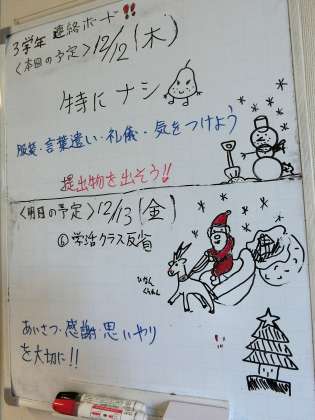 3学年 連絡ボード!!
<本日の予定> 12/12(木)
特にナシ
服装・言葉遣い・礼儀・気をつけよう
提出物を出そう!!
<明日の予定> 12/13(金)
⑥学活クラス反省
あいさつ・感謝・思いやり
を大切に!!